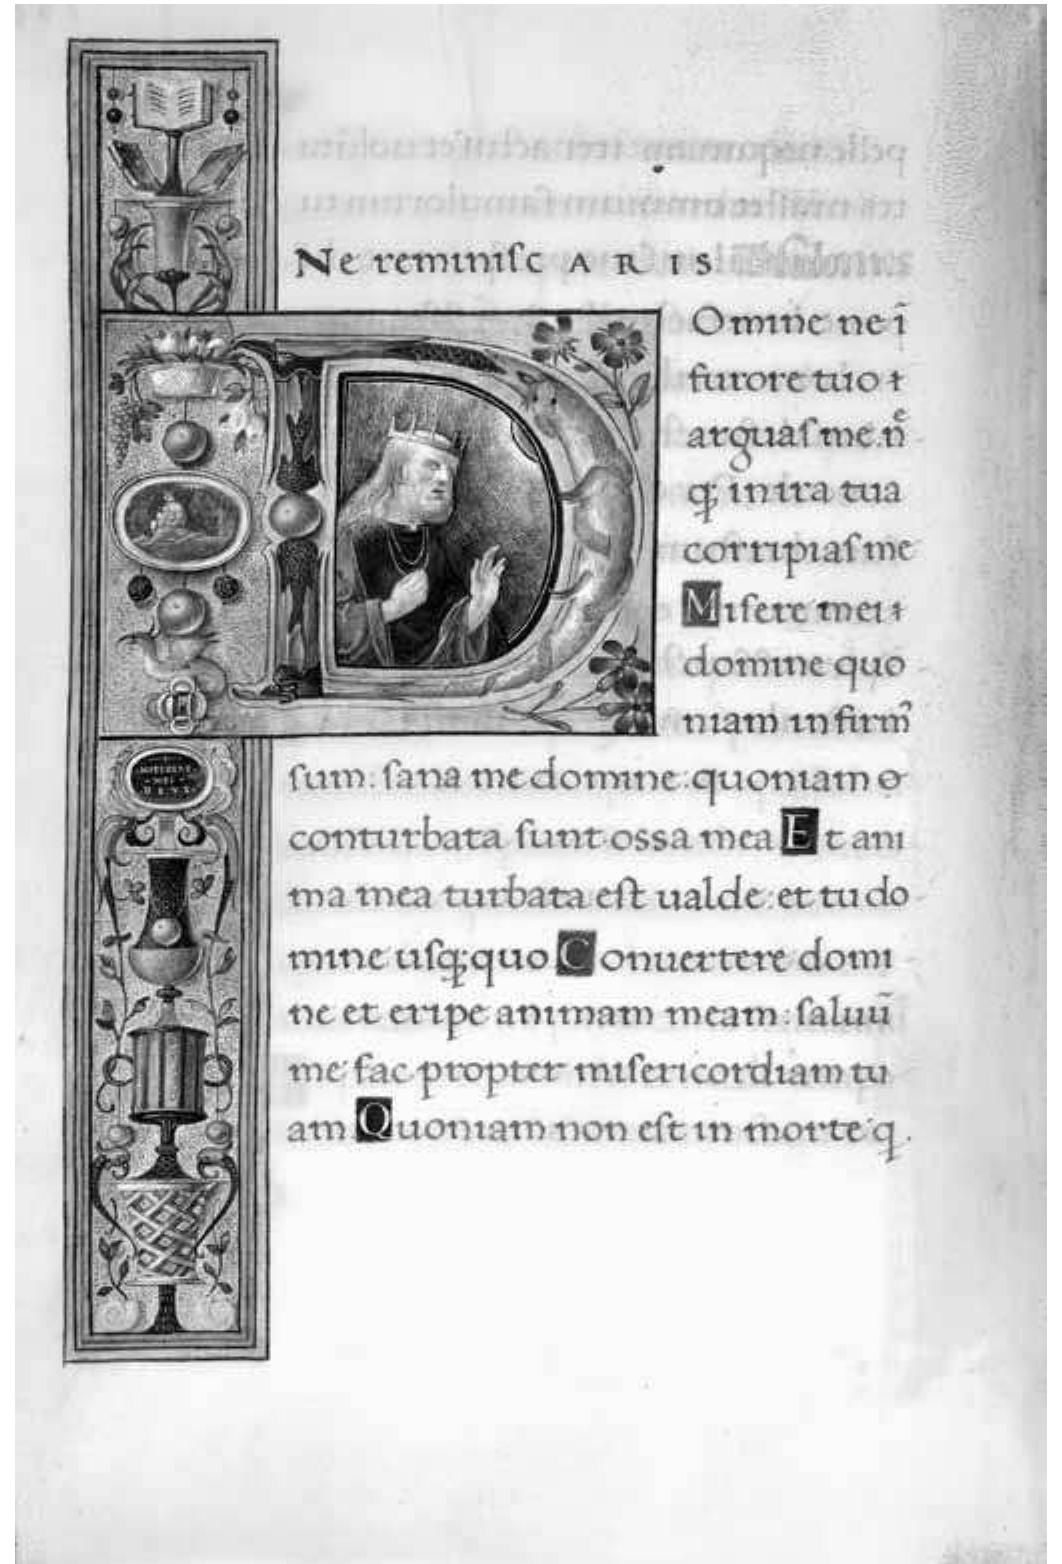 Ne reminiſc A R I S
Omine ne ĩ
furore tuo ⁊
arguaſ me. ñ
q; in ira tua
corripiaſ me
Miſere mei ⁊
domine quo
niam infirm̃
ſum: ſana me domine: quoniam
conturbata ſunt ossa mea Et ani
ma mea turbata eſt ualde: et tu do
mine uſq; quo Conuertere domi
ne et eripe animam meam: ſaluũ
me fac propter miſericordiam tu
am Quoniam non eſt in morte q